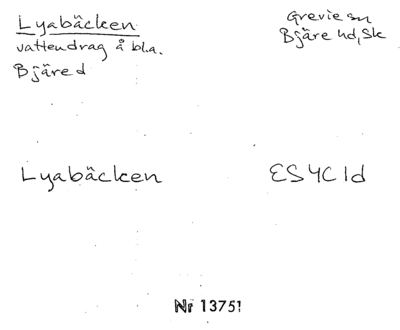 Lyabäcken
vattendrag å bl.a.
Bjäred
Grevie sn
Bjäre hd, Sk
Lyabäcken
ES4C1d
Nr 13751